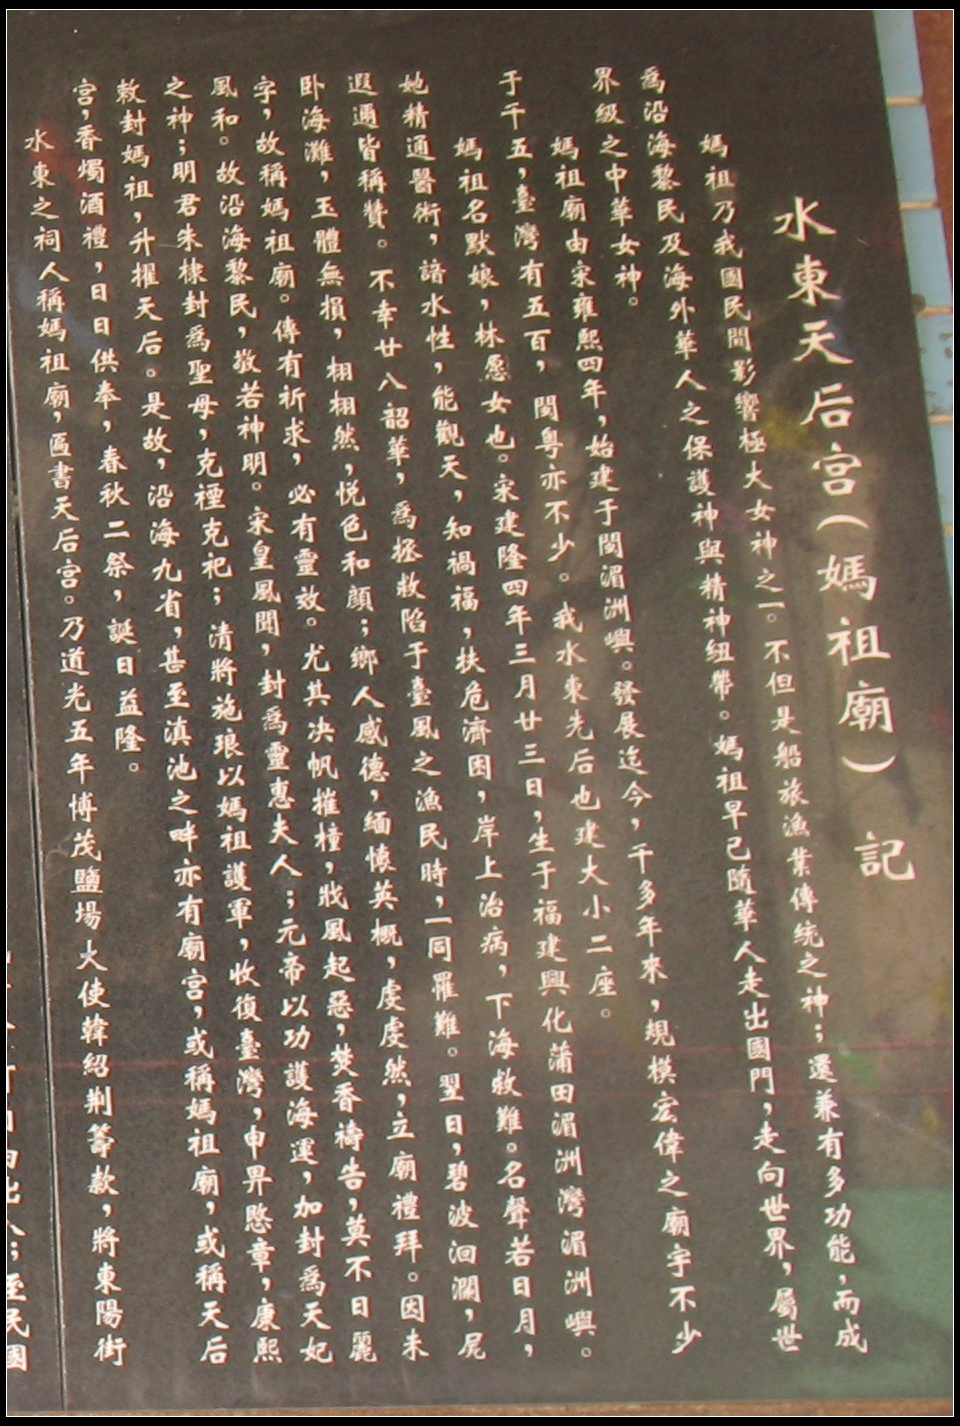 水東天后宫(媽祖廟)記
媽祖乃我國民間影響極大女神之一。不但是船旅漁業傳統之神；還兼有多功能，而成
爲沿海黎民及海外華人之保護神與精神紐帶。媽祖早已隨華人走出國門，走向世界，屬世
界級之中華女神。
媽祖廟由宋雍熙四年，始建于閩湄洲嶼。發展迄今，千多年來，規模宏偉之廟宇不少
于千五，臺灣有五百，閩粤亦不少。我水東先后也建大小二座。
媽祖名默娘，林愿女也。宋建隆四年三月廿三日，生于福建興化蒲田湄洲灣湄洲嶼。
她精通醫術，諳水性，能觀天，知禍福，扶危濟困，岸上治病，下海救難。名聲若日月，
遐邇皆稱贊。不幸廿八韶華，爲拯救陷于臺風之漁民時，一同罹難。翌日，碧波洄瀾，屍
卧海灘，玉體無損，栩栩然，悦色和顔；鄉人感德，緬懷英概，虔虔然，立廟禮拜。因未
字，故稱媽祖廟。傳有祈求，必有靈效。尤其决帆摧橦，戕風起惡，焚香禱告，莫不日麗
風和。故沿海黎民，敬若神明。宋皇風聞，封爲靈惠夫人；元帝以功護海運，加封爲天妃
之神；明君朱棣封爲聖母，克禋克祀；清將施琅以媽祖護軍，收復臺灣，申畀愍章，康熙
敕封媽祖，升擢天后。是故，沿海九省，甚至滇池之畔亦有廟宫，或稱媽祖廟，或稱天后
宫，香燭酒禮，日日供奉，春秋二祭，誕日益隆。
水東之祠人稱媽祖廟，匾書天后宫。乃道光五年博茂鹽場大使韓紹荆籌款，將東陽街